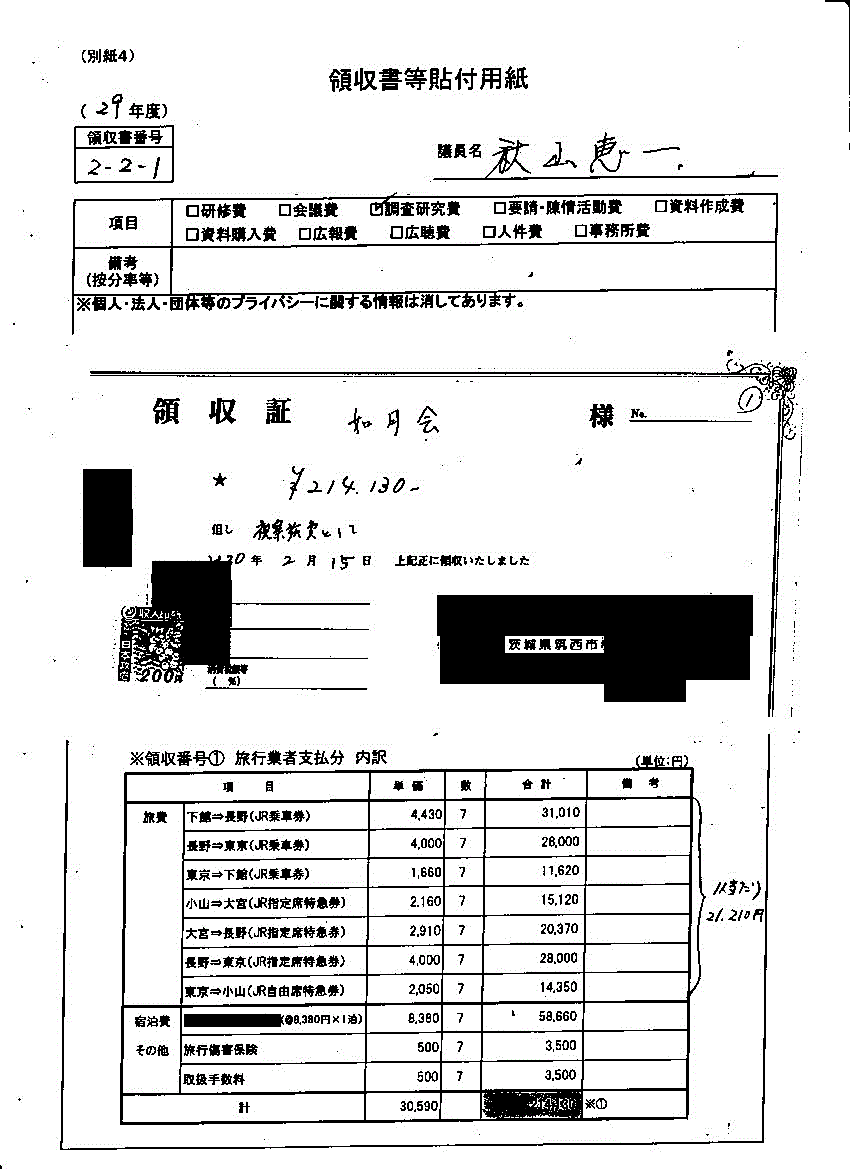 (別紙4)
領収書等貼付用紙
(29年度)
領収書番号
2-2-1
議員名 秋山恵一
項目
□研修費 □会議費 ☑調査研究費 □要請・陳情活動費 □資料作成費
□資料購入費 □広報費 □広聴費 □人件費 □事務所費
備考
(按分率等)
※個人・法人・団体等のプライバシーに関する情報は消してあります。
領収証 如月会 様 No. ①
★ ¥214,130-
但し 視察旅費として
30年2月15日 上記正に領収いたしました
収入印紙
200円
茨城県筑西市
(%)
※領収番号① 旅行業者支払分 内訳 (単位:円)
項目 単価 数 合計 備考
旅費 下館⇒長野(JR乗車券) 4,430 7 31,010
長野⇒東京(JR乗車券) 4,000 7 28,000
東京⇒下館(JR乗車券) 1,660 7 11,620
小山⇒大宮(JR指定席特急券) 2,160 7 15,120
大宮⇒長野(JR指定席特急券) 2,910 7 20,370
長野⇒東京(JR指定席特急券) 4,000 7 28,000
東京⇒小山(JR自由席特急券) 2,050 7 14,350
1人当たり
21,210円
宿泊費 (@8,380円×1泊) 8,380 7 58,660
その他 旅行傷害保険 500 7 3,500
取扱手数料 500 7 3,500
計 30,590 214,130 ※①